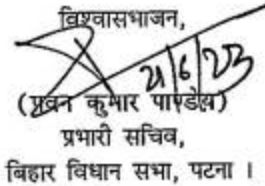 विश्वासभाजन,
21/6/23
(पवन कुमार पाण्डेय)
प्रभारी सचिव,
बिहार विधान सभा, पटना ।